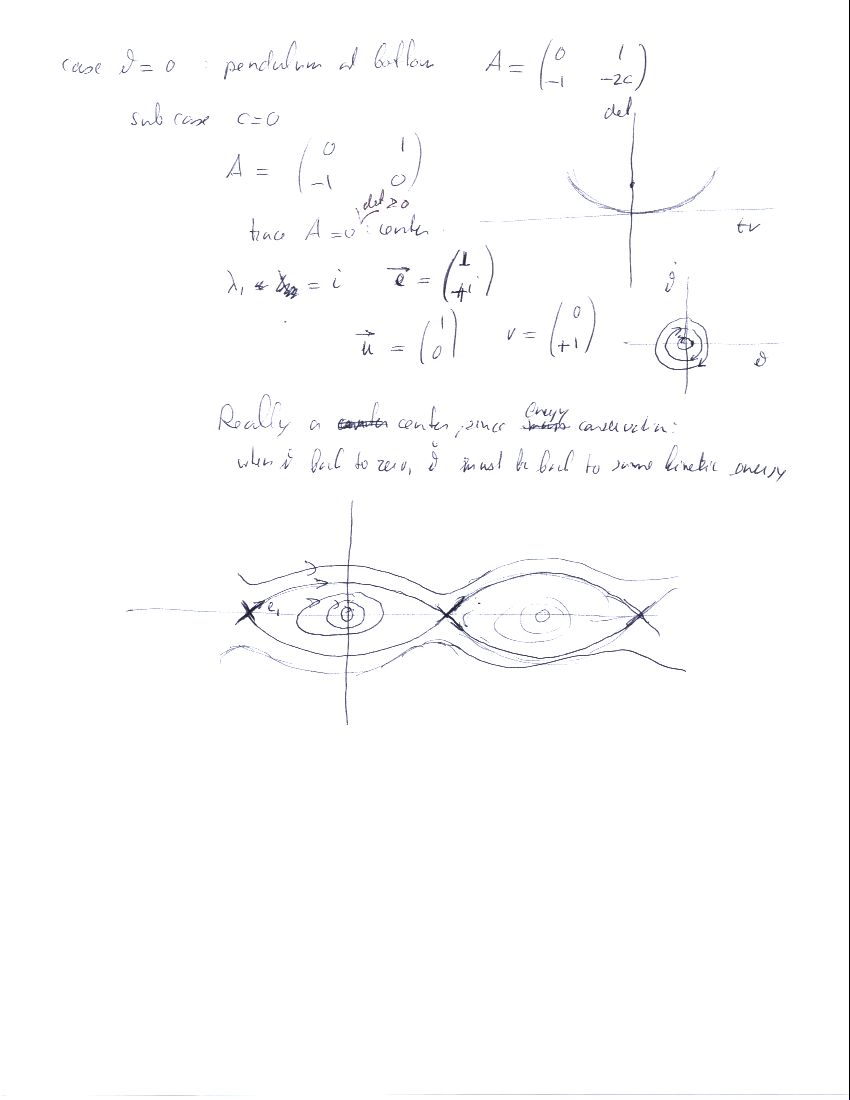 case ϑ = 0 : pendulum at bottom A = ( 0 1 ; -1 -2c )
sub case c=0
det
A = ( 0 1 ; -1 0 )
det ≥ 0
trace A = 0 : center
tr
λ₁ = i e⃗ = ( 1 ; +i )
ϑ̇
u⃗ = ( 1 ; 0 ) v = ( 0 ; +1 )
ϑ
Really a center, since energy conservation:
when back to zero, must be back to same kinetic energy
e₁